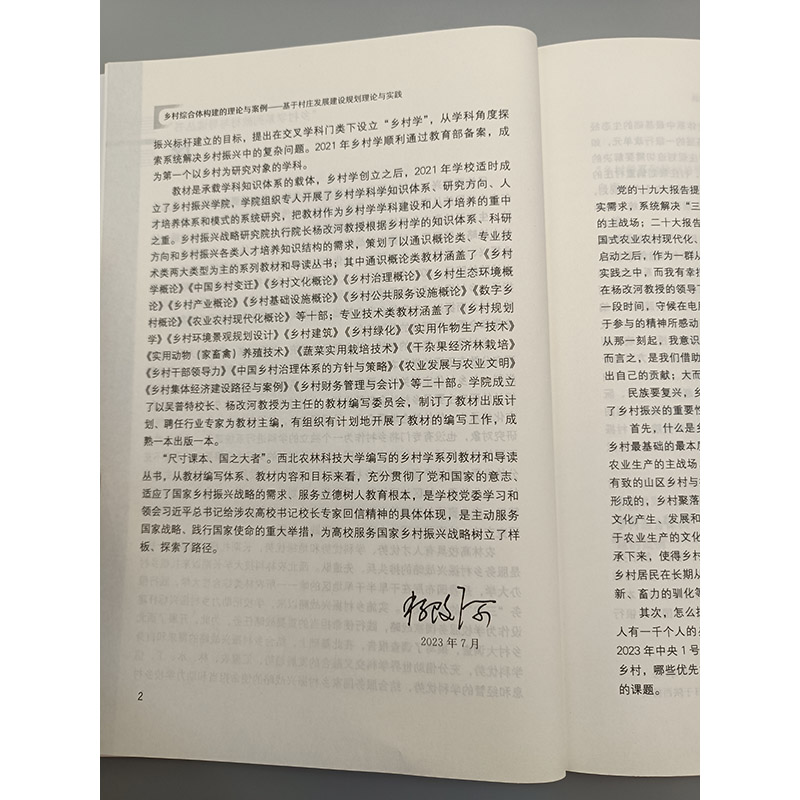 乡村综合体构建的理论与案例——基于村庄发展建设规划理论与实践
振兴标杆建立的目标，提出在交叉学科门类下设立“乡村学”，从学科角度探
索系统解决乡村振兴中的复杂问题。2021年乡村学顺利通过教育部备案，成
为第一个以乡村为研究对象的学科。
教材是承载学科知识体系的载体，乡村学创立之后，2021年学校适时成
立了乡村振兴学院，学院组织专人开展了乡村学科学知识体系、研究方向、人
才培养体系和模式的系统研究，把教材作为乡村学学科建设和人才培养的重中
之重。乡村振兴战略研究院执行院长杨改河教授根据乡村学的知识体系、科研
方向和乡村振兴各类人才培养知识结构的需求，策划了以通识概论类、专业技
术类两大类型为主的系列教材和导读丛书；其中通识概论类教材涵盖了《乡村
学概论》《中国乡村变迁》《乡村文化概论》《乡村治理概论》《乡村生态环境概
论》《乡村产业概论》《乡村基础设施概论》《乡村公共服务设施概论》《数字乡
村概论》《农业农村现代化概论》等十部；专业技术类教材涵盖了《乡村规划
学》《乡村环境景观规划设计》《乡村建筑》《乡村绿化》《实用作物生产技术》
《实用动物（家畜禽）养殖技术》《蔬菜实用栽培技术》《干杂果经济林栽培》
《乡村干部领导力》《中国乡村治理体系的方针与策略》《农业发展与农业文明》
《乡村集体经济建设路径与案例》《乡村财务管理与会计》等二十部。学院成立
了以吴普特校长、杨改河教授为主任的教材编写委员会，制订了教材出版计
划、聘任行业专家为教材主编，有组织有计划地开展了教材的编写工作，成
熟一本出版一本。
“尺寸课本、国之大者”。西北农林科技大学编写的乡村学系列教材和导读
丛书，从教材编写体系、教材内容和目标来看，充分贯彻了党和国家的意志、
适应了国家乡村振兴战略的需求、服务立德树人教育根本，是学校党委学习和
领会习近平总书记给涉农高校书记校长专家回信精神的具体体现，是主动服务
国家战略、践行国家使命的重大举措，为高校服务国家乡村振兴战略树立了样
板、探索了路径。
杨改河
2023年7月
2
党的十九大报告提
实需求，系统解决“三
的主战场；二十大报告
国式农业农村现代化、
启动之后，作为一群从
实践之中，而我有幸
在杨改河教授的领导下
一段时间，守候在电
于参与的精神所感动
从那一刻起，我意识
而言之，是我们借助
出自己的贡献；大而
民族要复兴，乡村
了乡村振兴的重要性
首先，什么是乡
乡村最基础的最本质
农业生产的主战场
有致的山区乡村与
形成的，乡村聚落
文化产生、发展和
于农业生产的文化
承下来，使得乡村
乡村居民在长期从
新、畜力的驯化等
其次，怎么
人有一千个人的
2023年中央1号
乡村，哪些优先
的课题。